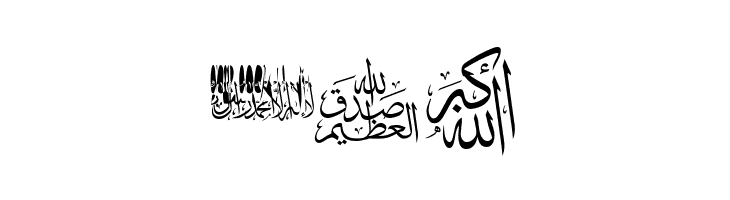 الله أكبر صدق الله العظيم لا إله إلا الله محمد رسول الله